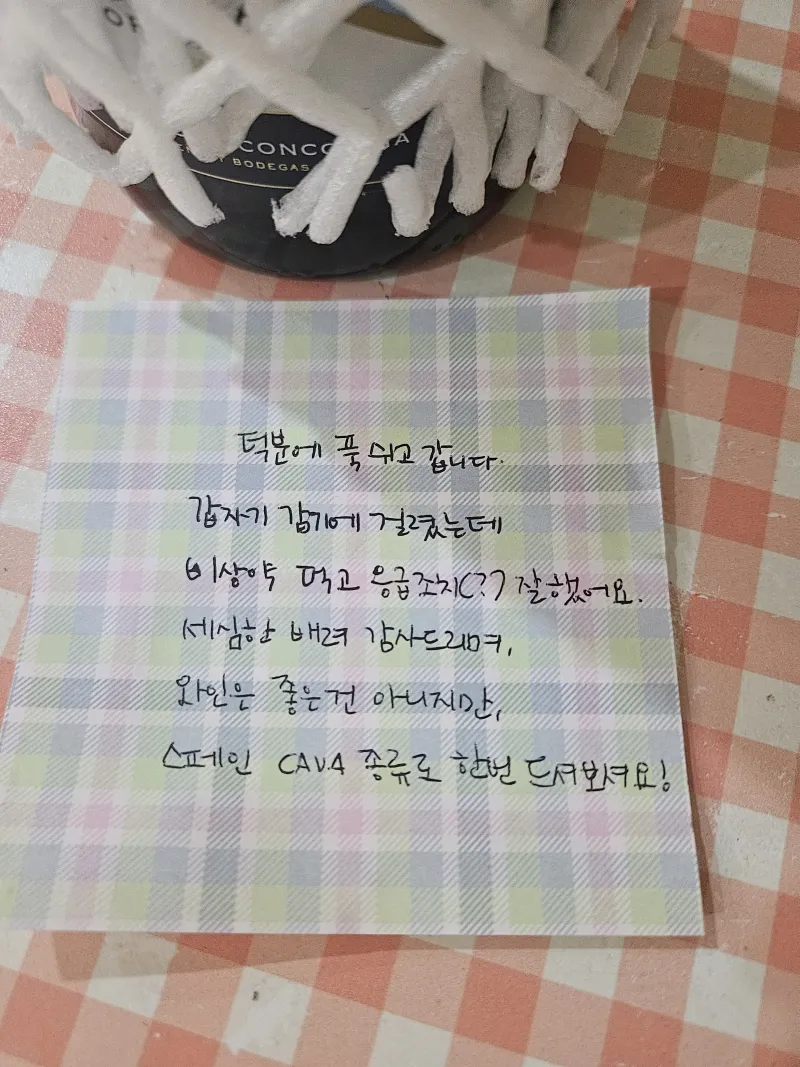 CONCO
BODEGAS
덕분에 푹 쉬고 갑니다.
갑자기 감기에 걸렸는데
비상약 먹고 응급조치(??) 잘했어요.
세심한 배려 감사드리며,
와인은 좋은건 아니지만,
스페인 CAVA 종류로 한번 드셔보셔요!